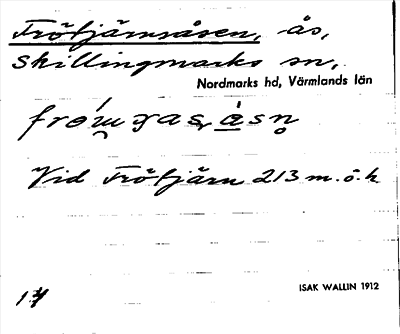 Fröfjärnsåsen, ås,
Skillingmarks sn,
Nordmarks hd, Värmlands län
Vid Fröfjärn 213 m. ö. h.
ISAK WALLIN 1912